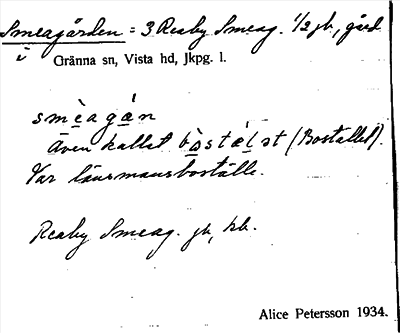 Smeagården = 3 Reaby Smeag. 1/2 jb, gård
i Gränna sn, Vista hd, Jkpg. l.
smèagán
Även kallat bòstélət (Bostället).
Var länsmansboställe.
Reaby Smeag. jb, kb.
Alice Petersson 1934.